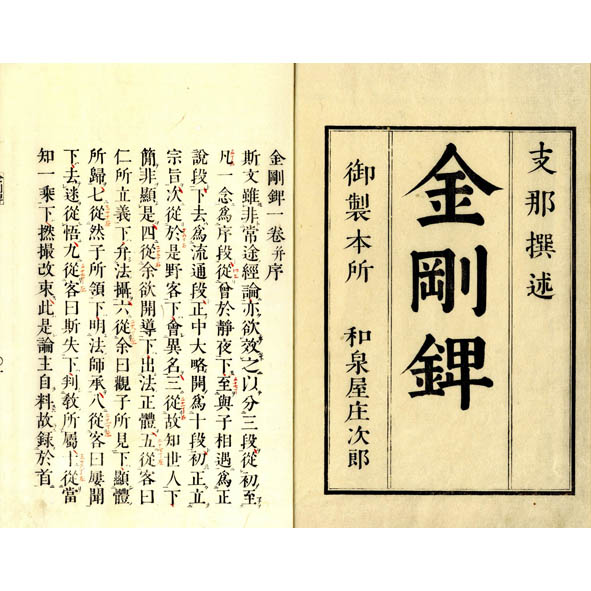 支那撰述
金剛錍
御製本所　和泉屋庄次郎
金剛錍一卷并序
斯文雖非常途經論亦欲效之以分三段從初至
凡一念爲序段從曾於靜夜下至與子相遇爲正
說段下去爲流通段正中大略開爲十段初正立
宗旨次從於是野客下會異名三從故知世人下
簡非顯是四從余欲開導下出法正體五從客曰
仁所立義下弁法攝六從余曰觀子所見下顯體
所歸七從然子所領下明法師承八從客曰屢聞
下去迷從悟九從客曰斯失下判教所屬十從當
知一乘下撚撮改束此是論主自料故錄於首